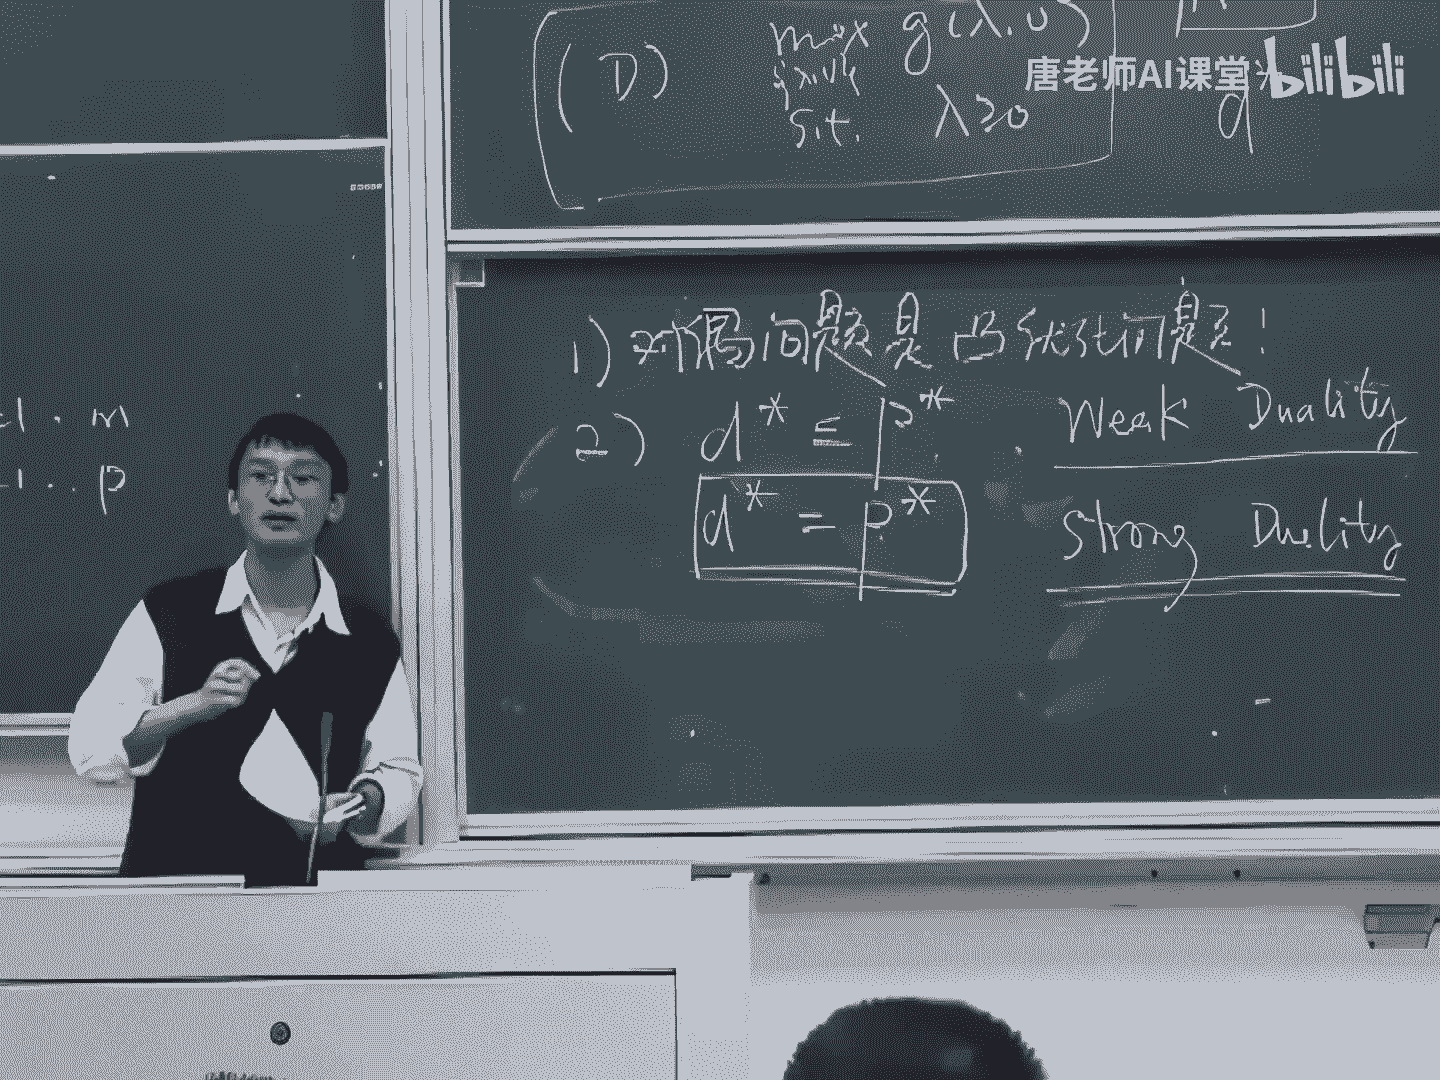 (D) max g(λ,υ)
s.t. λ≥0
d
唐老师AI课堂 bilibili
=1 . m
=1 .. p
1) 对偶问题是凸优化问题!
2) d* ≤ p* Weak Duality
d* = p* Strong Duality